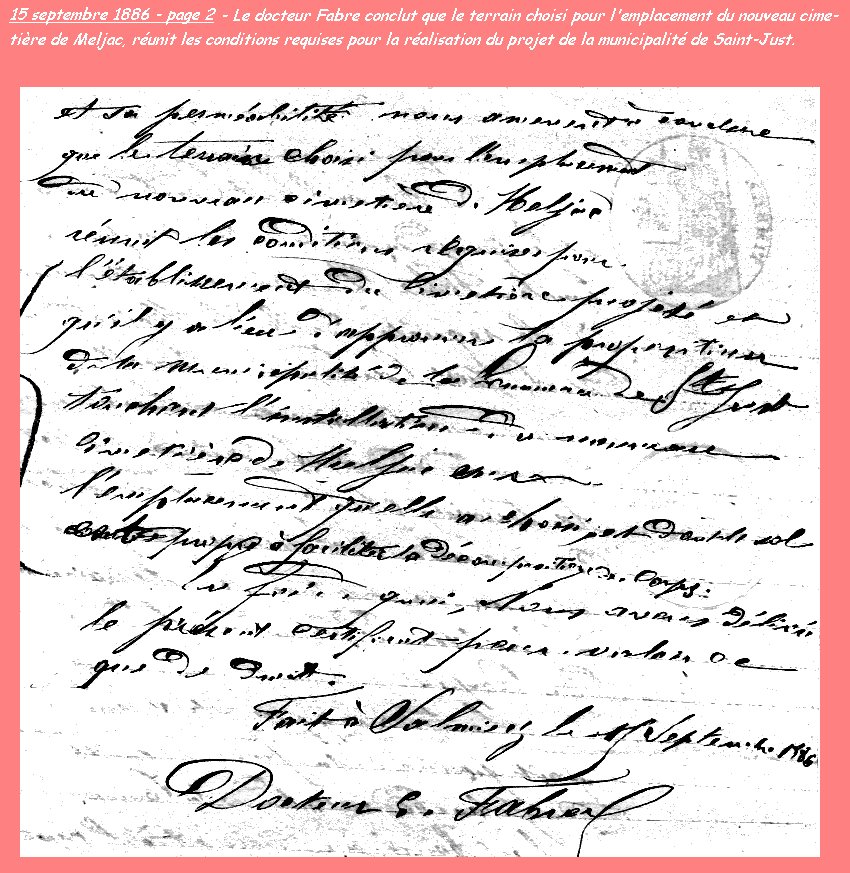 15 septembre 1886 - page 2 - Le docteur Fabre conclut que le terrain choisi pour l'emplacement du nouveau cime-
tière de Meljac, réunit les conditions requises pour la réalisation du projet de la municipalité de Saint-Just.
et sa perméabilité nous amènent à conclure
que le terrain choisi pour l'emplacement
du nouveau cimetière de Meljac
réunit les conditions requises pour
l'établissement du cimetière projeté et
qu'il y a lieu d'approuver la proposition
de la municipalité de la Commune de St Just
touchant l'installation du nouveau
cimetière de Meljac
l'emplacement qu'elle a choisi et dont le sol
propre à faciliter la décomposition des corps.
En foi de quoi, Nous avons délivré
le présent certificat pour valoir ce
que de droit.
Fait à Salmiech le 15 Septembre 1886
Docteur E. Fabre